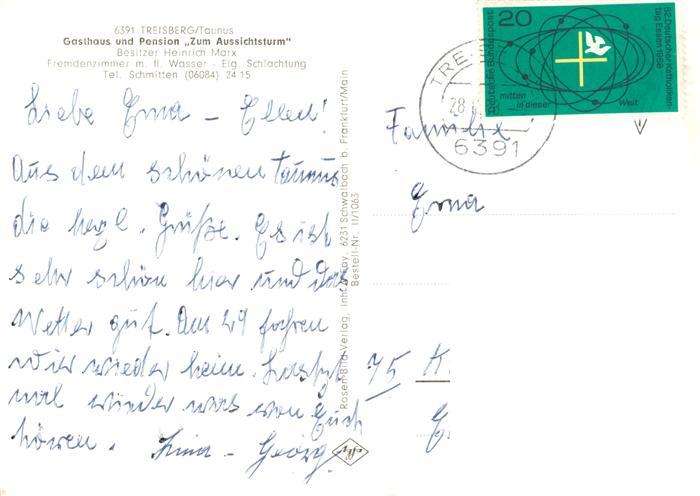 6391 TREISBERG/Taunus
Gasthaus und Pension „Zum Aussichtsturm"
Besitzer Heinrich Marx
Fremdenzimmer m. fl. Wasser - Eig. Schlachtung
Tel. Schmitten (06084) 24 15
Liebe Erna – Ellen!
Aus dem schönen Taunus
die hezl. Grüße. Es ist
sehr schön hier und das
Wetter gut. Am 29 fahren
wir wieder heim. Lasst
mal wieder was von Euch
hören. Irma – Georg.
Rosen-Bild-Verlag, Inh. Kay, 6231 Schwalbach b. Frankfurt/Main
Bestell-Nr. 11/1063
20
Deutsche Bundespost
82. Deutscher Katholiken-
tag Essen 1968
mitten
in dieser Welt
TRE
28
6391
Familie
Erna
75 K